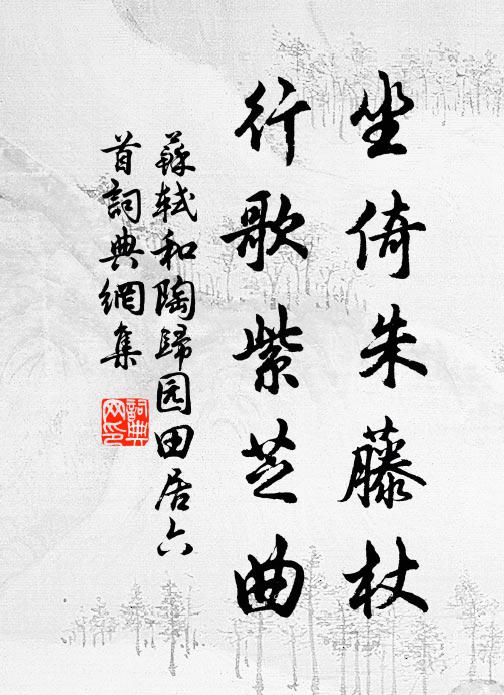 坐倚朱藤杖
行歌紫芝曲
蘇軾和陶歸园田居六
首詞典網集
詞典
网印